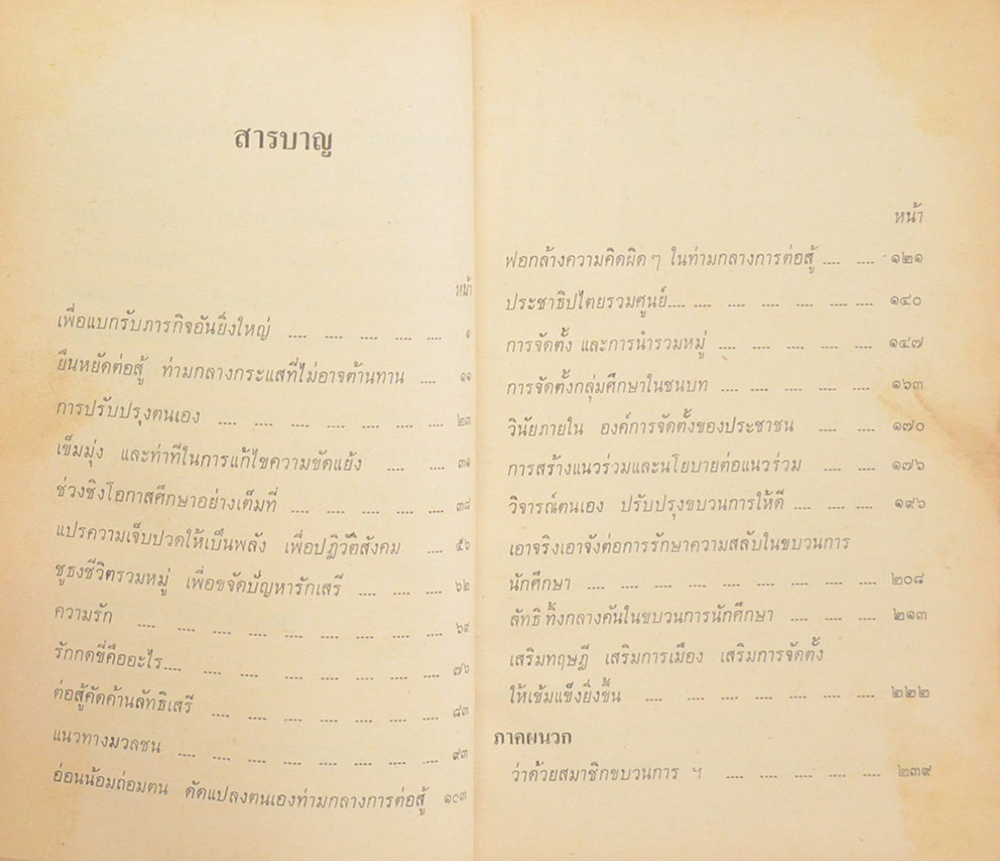 สารบาญ
หน้า
เพื่อแบกรับภารกิจอันยิ่งใหญ่ .... .... .... .... ๑
ยืนหยัดต่อสู้ ท่ามกลางกระแสที่ไม่อาจต้านทาน .... ๑๑
การปรับปรุงตนเอง .... .... .... .... .... .... ๒๓
เข็มมุ่ง และท่าทีในการแก้ไขความขัดแย้ง .... .... ๓๑
ช่วงชิงโอกาสศึกษาอย่างเต็มที่ .... .... .... .... ๓๘
แปรความเจ็บปวดให้เป็นพลัง เพื่อปฏิวัติสังคม .... ๕๖
ชูธงชีวิตรวมหมู่ เพื่อขจัดปัญหารักเสรี .... .... .... ๖๒
ความรัก .... .... .... .... .... .... .... .... ๖๙
รักกดขี่คืออะไร.... .... .... .... .... .... .... ๗๖
ต่อสู้คัดค้านลัทธิเสรี .... .... .... .... .... .... ๘๓
แนวทางมวลชน .... .... .... .... .... .... .... ๙๓
อ่อนน้อมถ่อมตน ดัดแปลงตนเองท่ามกลางการต่อสู้ ๑๐๓
หน้า
ฟอกล้างความคิดผิด ๆ ในท่ามกลางการต่อสู้ .... .... ๑๒๑
ประชาธิปไตยรวมศูนย์.... .... .... .... .... .... .... ๑๔๐
การจัดตั้ง และการนำรวมหมู่ .... .... .... .... .... ๑๔๗
การจัดตั้งกลุ่มศึกษาในชนบท .... .... .... .... ๑๖๓
วินัยภายใน องค์การจัดตั้งของประชาชน .... .... ๑๗๐
การสร้างแนวร่วมและนโยบายต่อแนวร่วม .... .... ๑๗๖
วิจารณ์ตนเอง ปรับปรุงขบวนการให้ดี .... .... .... ๑๙๖
เอาจริงเอาจังต่อการรักษาความสลับในขบวนการ
นักศึกษา .... .... .... .... .... .... .... .... ๒๐๘
ลัทธิ ทิ้งกลางคันในขบวนการนักศึกษา .... .... .... ๒๑๓
เสริมทฤษฎี เสริมการเมือง เสริมการจัดตั้ง
ให้เข้มแข็งยิ่งขึ้น .... .... .... .... .... .... ๒๒๒
ภาคผนวก
ว่าด้วยสมาชิกขบวนการ ฯ .... .... .... .... ๒๓๙